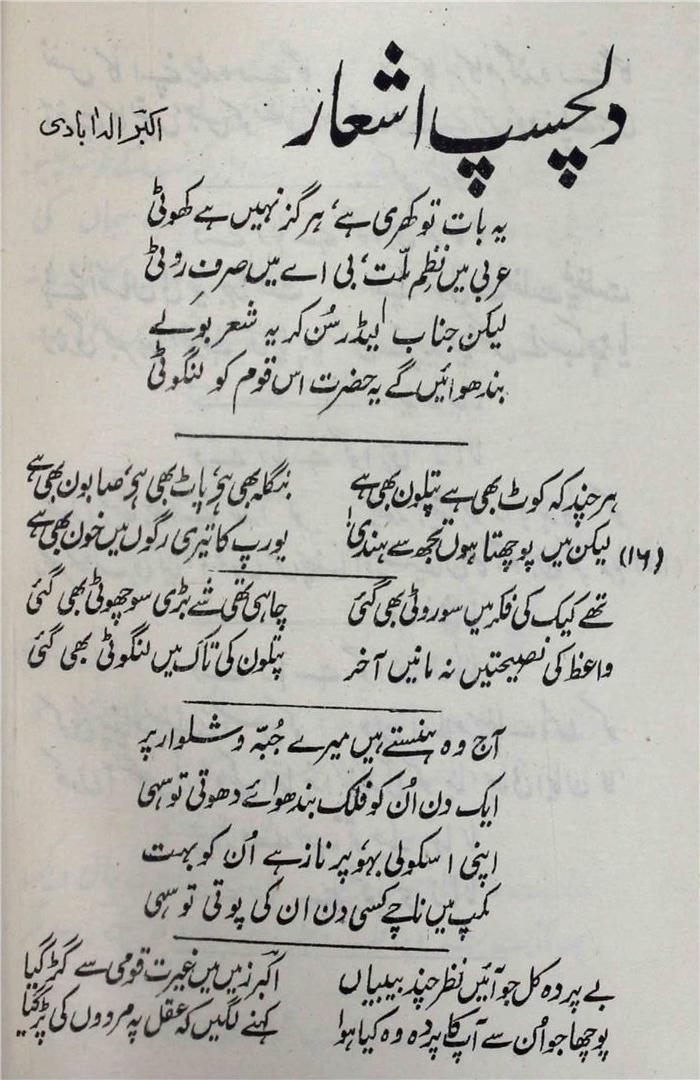 دلچسپ اشعار
اکبر الہ آبادی
یہ بات تو کھری ہے، ہرگز نہیں ہے کھوٹی
عربی میں نظمِ ملّت، بی اے میں صرف روٹی
لیکن جناب لیڈر سُن کر یہ شعر بولے
بندھوائیں گے یہ حضرت اس قوم کو لنگوٹی
ہر چند کہ کوٹ بھی ہے پتلون بھی ہے بنگلہ بھی ہے، پاٹ بھی ہے، صابون بھی ہے
(۱۶) لیکن میں پوچھتا ہوں تجھ سے ہندی یورپ کا تیری رگوں میں خون بھی ہے
تھے کیک کی فکر میں سو روٹی بھی گئی چاہی تھی شے بڑی سو چھوٹی بھی گئی
واعظ کی نصیحتیں نہ مانیں آخر پتلون کی تاک میں لنگوٹی بھی گئی
آج وہ ہنستے ہیں میرے جُبّہ و شلوار پر
ایک دن اُن کو فلک بندھوائے دھوتی تو سہی
اپنی اسکولی بہو پر ناز ہے اُن کو بہت
کمپ میں ناچے کسی دن ان کی پوتی تو سہی
بے پردہ کل جو آئیں نظر چند بیبیاں اکبرؔ زمیں میں غیرتِ قومی سے گڑ گیا
پوچھا جو اُن سے آپ کا پردہ وہ کیا ہوا کہنے لگیں کہ عقل پہ مردوں کی پڑ گیا